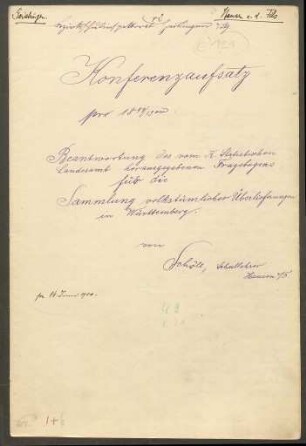 Geislingen
Hausen a. d. Fils
Konferenzaufsatz
pro 1899/1900
Beantwortung des vom K. Statistischen
Landesamt herausgegebenen Fragebogens
für die
Sammlung volkstümlicher Überlieferungen
in Württemberg
von
Schöll, Schullehrer
Hausen a/F.
1900.